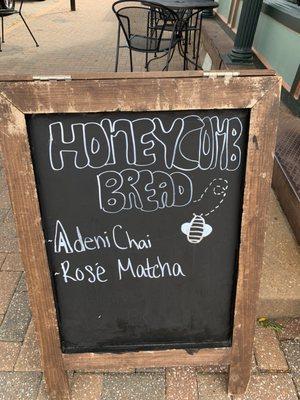 HONEYCOMB
BREAD
-Adeni Chai
-Rosé Matcha